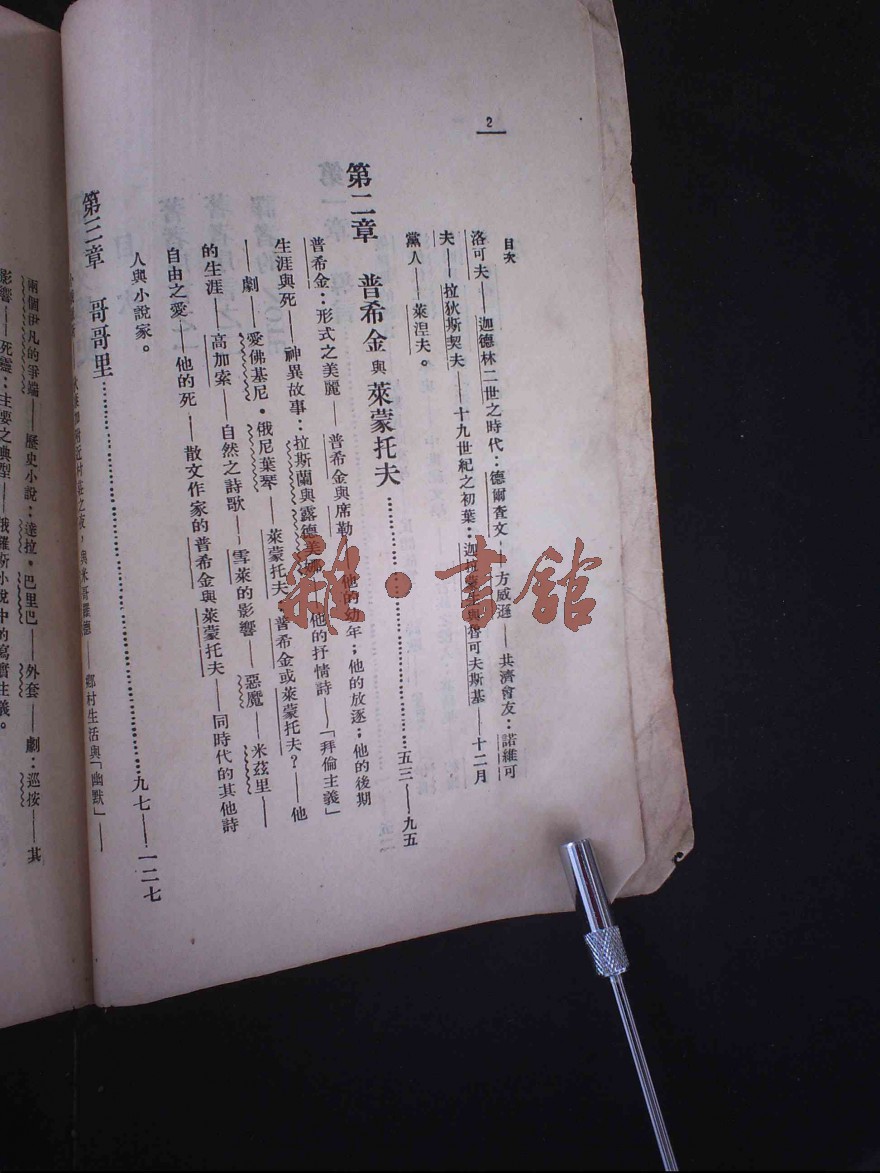 2
目次
洛可夫——迦德林二世之時代：德爾查文——方威遜——共濟會友：諾維可
夫——拉狄斯契夫——十九世紀之初葉：迦拉 與 可夫斯基——十二月
黨人——萊涅夫。
第二章 普希金與萊蒙托夫……五三——九五
普希金：形式之美麗——普希金與席勒——他的幼年；他的放逐；他的後期
生涯與死——神異故事：拉斯蘭與露德美娜——他的抒情詩——「拜倫主義」
——劇——愛佛基尼·俄尼葉琴——萊蒙托夫：普希金或萊蒙托夫？——他
的生涯——高加索——自然之詩歌——雪萊的影響——惡魔——米茲里——
自由之愛——他的死——散文作家的普希金與萊蒙托夫——同時代的其他詩
人與小說家。
第三章 哥哥里……九七——一二七
附近村莊之夜，與米哥羅德——鄉村生活與「幽默」——
兩個伊凡的爭端——歷史小說：達拉·巴里巴——外套——劇：巡按——其
影響——死靈：主要之典型——俄羅斯小說中的寫實主義。
雜·書館